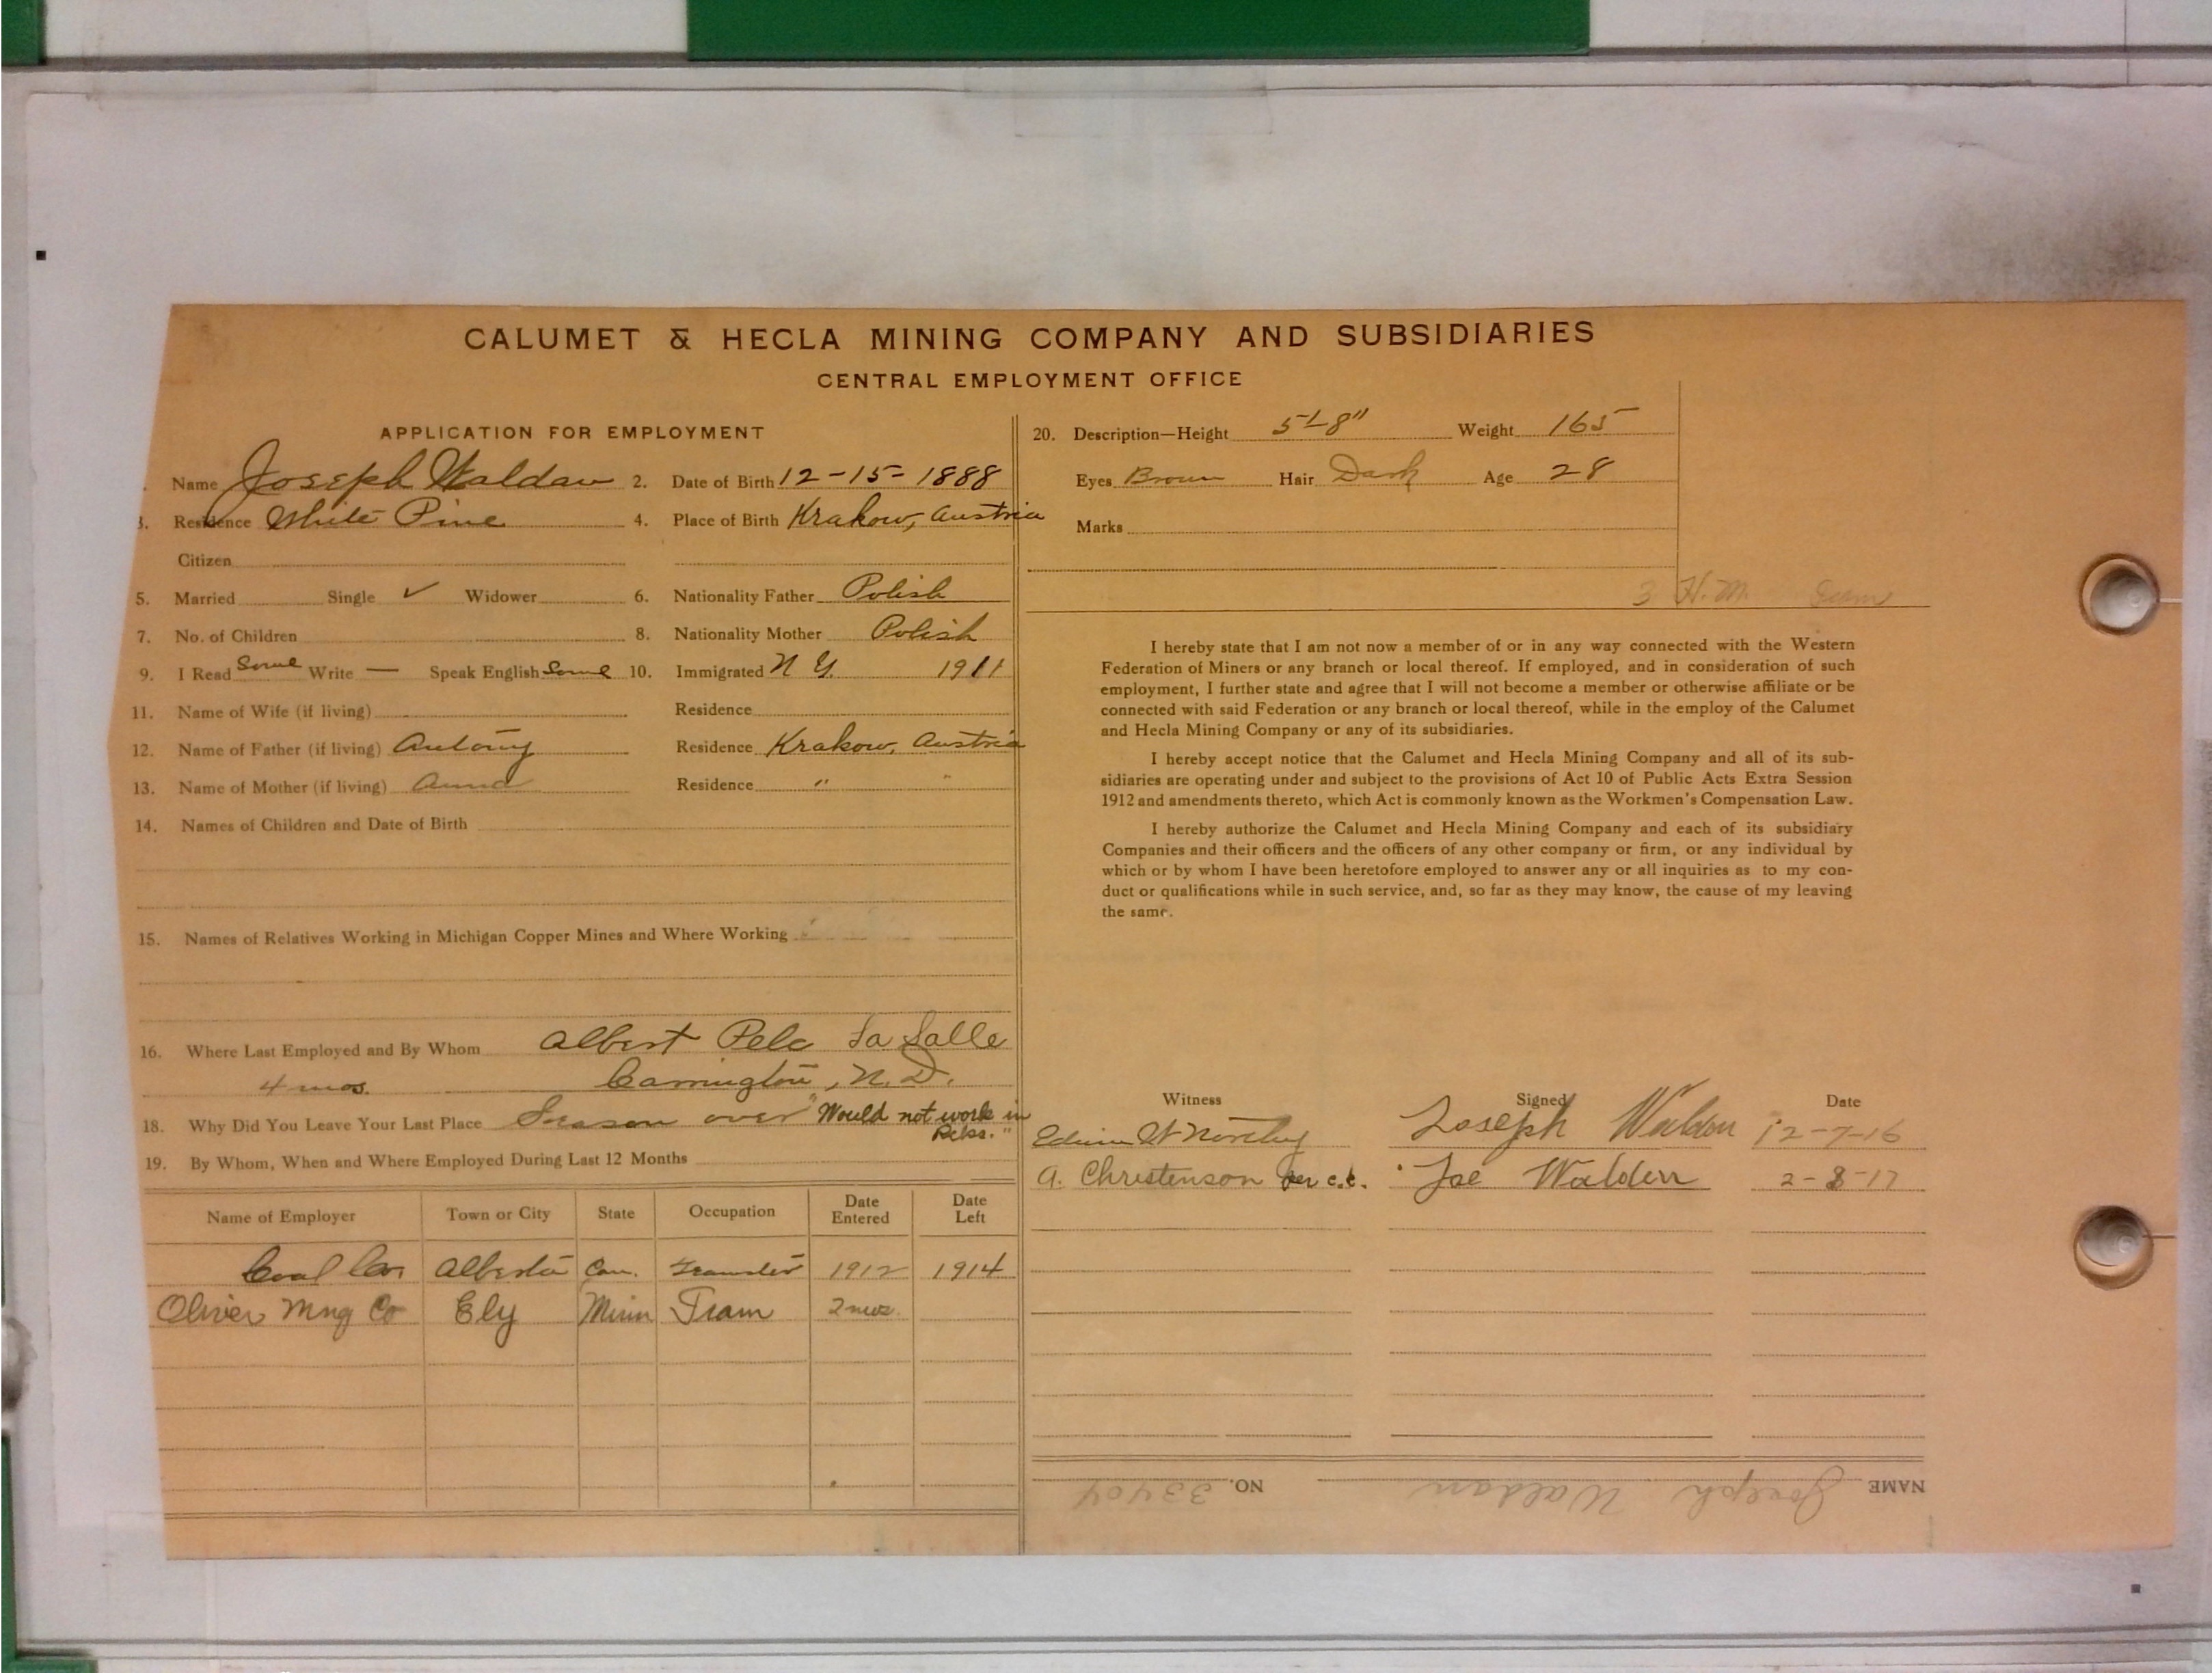 CALUMET & HECLA MINING COMPANY AND SUBSIDIARIES
CENTRAL EMPLOYMENT OFFICE
APPLICATION FOR EMPLOYMENT
Name Joseph Waldan 2. Date of Birth 12-15-1888
3. Residence White Pine 4. Place of Birth Krakow, Austria
Citizen
5. Married Single ✓ Widower 6. Nationality Father Polish
7. No. of Children 8. Nationality Mother Polish
9. I Read Some Write — Speak English Some 10. Immigrated N Y. 1911
11. Name of Wife (if living) Residence
12. Name of Father (if living) Antony Residence Krakow, Austria
13. Name of Mother (if living) Anna Residence " "
14. Names of Children and Date of Birth
15. Names of Relatives Working in Michigan Copper Mines and Where Working
16. Where Last Employed and By Whom Albert Pelc La Salle
4 mos. Carrington, N.D.
18. Why Did You Leave Your Last Place Season over "Would not work in
Rcks."
19. By Whom, When and Where Employed During Last 12 Months
Name of Employer Town or City State Occupation Date Entered Date Left
Coal Co. Alberta Can. 1912 1914
Oliver Mng Co Ely Minn Tram 2 mos.
20. Description—Height 5'-8" Weight 165
Eyes Brown Hair Dark Age 28
Marks
3 H.M.
I hereby state that I am not now a member of or in any way connected with the Western
Federation of Miners or any branch or local thereof. If employed, and in consideration of such
employment, I further state and agree that I will not become a member or otherwise affiliate or be
connected with said Federation or any branch or local thereof, while in the employ of the Calumet
and Hecla Mining Company or any of its subsidiaries.
I hereby accept notice that the Calumet and Hecla Mining Company and all of its sub-
sidiaries are operating under and subject to the provisions of Act 10 of Public Acts Extra Session
1912 and amendments thereto, which Act is commonly known as the Workmen's Compensation Law.
I hereby authorize the Calumet and Hecla Mining Company and each of its subsidiary
Companies and their officers and the officers of any other company or firm, or any individual by
which or by whom I have been heretofore employed to answer any or all inquiries as to my con-
duct or qualifications while in such service, and, so far as they may know, the cause of my leaving
the same.
Witness Signed Date
Edwin Joseph Waldon 12-7-16
A. Christenson per c.c. Joe Walden 2-8-17
NAME Joseph Waldan NO. 33404